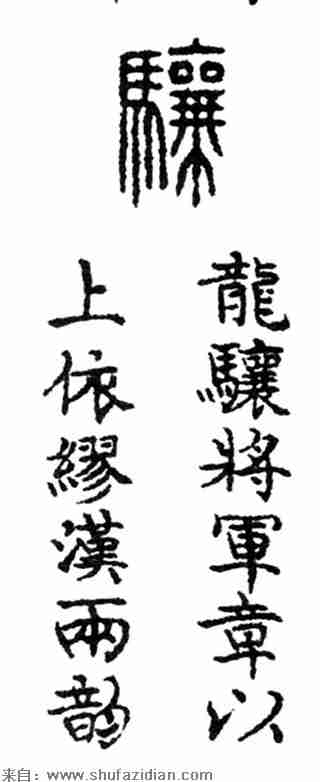 驤
龍驤將軍章以
上依繆漢兩韵
来自：www.shufazidian.com